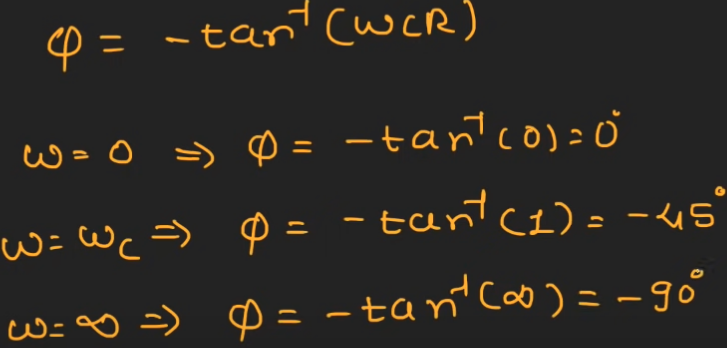 φ = -tan⁻¹(ωCR)
ω = 0 ⇒ φ = -tan⁻¹(0) = 0°
ω = ω_C ⇒ φ = -tan⁻¹(1) = -45°
ω = ∞ ⇒ φ = -tan⁻¹(∞) = -90°